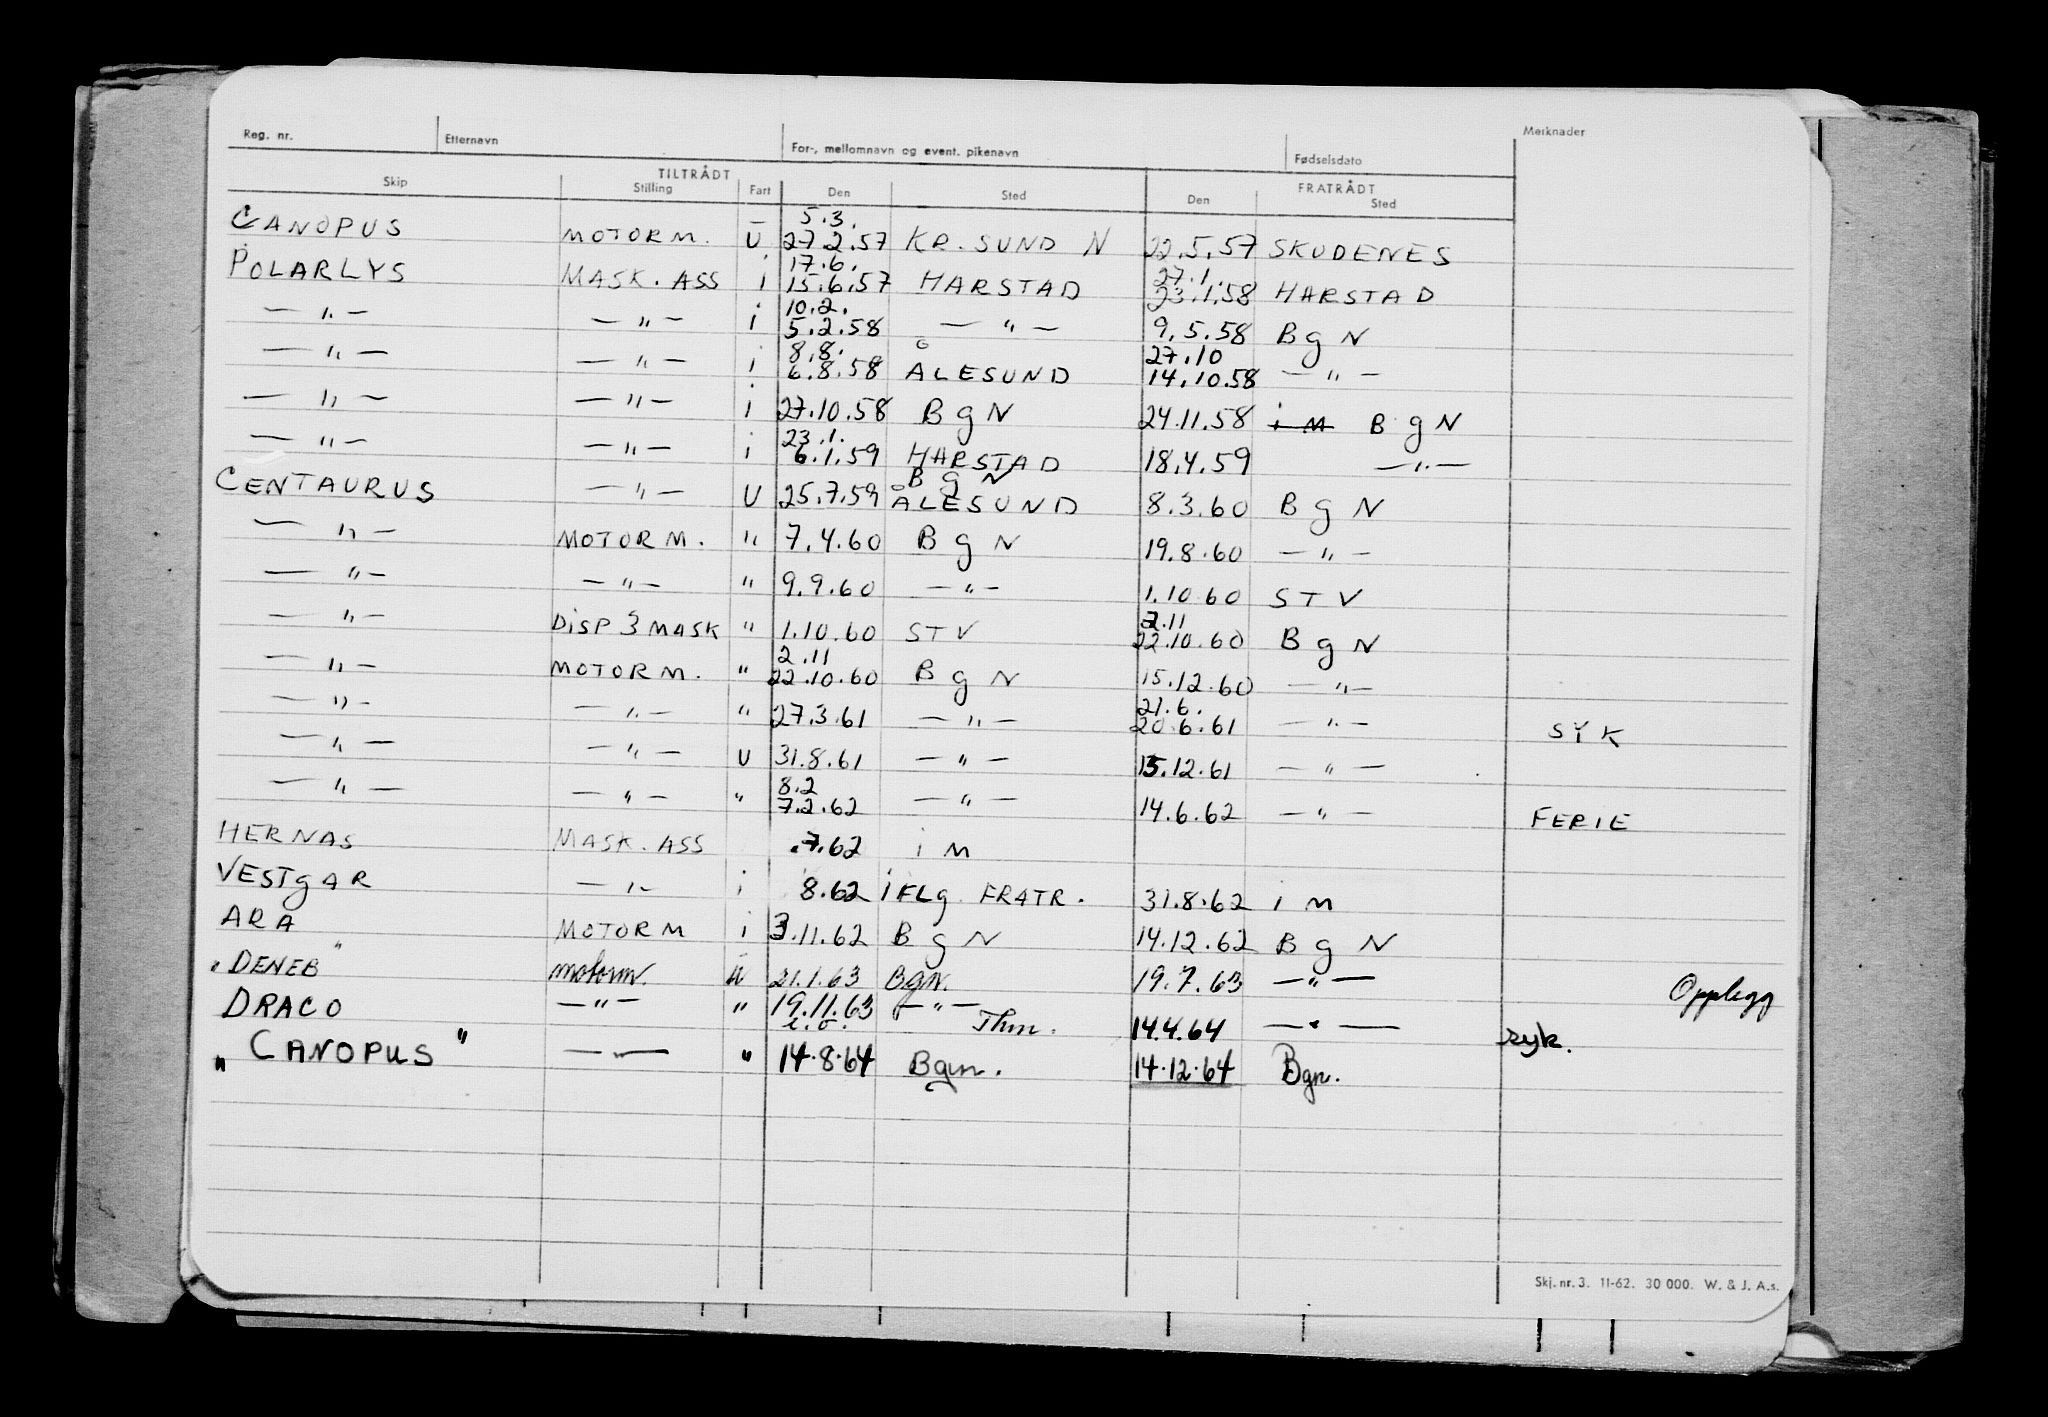 Reg. nr. Etternavn For-, mellomnavn og event. pikenavn Fødselsdato Merknader
TILTRÅDT FRATRÅDT
Skip Stilling Fart Den Sted Den Sted
5.3.
CANOPUS MOTORM. U 27.2.57 KR. SUND N 22.5.57 SKUDENES
17.6. 27.1.
POLARLYS MASK. ASS i 15.6.57 HARSTAD 23.1.58 HARSTAD
10.2.
— " — — " — i 5.2.58 — " — 9.5.58 BgN
8.8. 27.10
— " — — " — i 6.8.58 ÅLESUND 14.10.58 — " —
— " — — " — i 27.10.58 BgN 24.11.58 i M BgN
23.1.
— " — — " — i 6.1.59 HARSTAD 18.4.59 — " —
BgN
CENTAURUS — " — U 25.7.59 ÅLESUND 8.3.60 BgN
— " — MOTORM. " 7.4.60 BgN 19.8.60 — " —
— " — — " — " 9.9.60 — " — 1.10.60 STV
2.11
— " — DISP 3 MASK " 1.10.60 STV 22.10.60 BgN
2.11
— " — MOTORM. " 22.10.60 BgN 15.12.60 — " —
21.6.
— " — — " — " 27.3.61 — " — 20.6.61 — " — SYK
— " — — " — U 31.8.61 — " — 15.12.61 — " —
8.2
— " — — " — " 7.2.62 — " — 14.6.62 — " — FERIE
HERNAS MASK. ASS .7.62 i M
VESTgAR — " — i 8.62 iFLg. FRATR. 31.8.62 i M
ARA MOTORM i 3.11.62 BgN 14.12.62 BgN
"DENEB" motorm. u 21.1.63 Bgn. 19.7.63 — " — Opplegg
DRACO — " — " 19.11.63 — " — Thm. 14.4.64 — " — syk.
"CANOPUS" — " — " 14.8.64 Bgn. 14.12.64 Bgn.
Skj. nr. 3. 11-62. 30 000. W. & J. A.s.